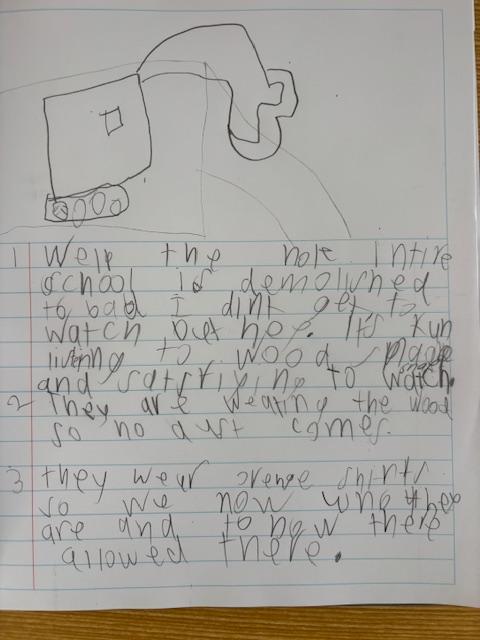 1 Well the hole intire
school is demolished
to bad i dint get to
watch but hey. It's fun
listing to wood
and satsfixing to watch.
2 They are weating the wood
so no dust comes.
3 they wear orenge shirts
so we now who they
are and to now there
allowed there.